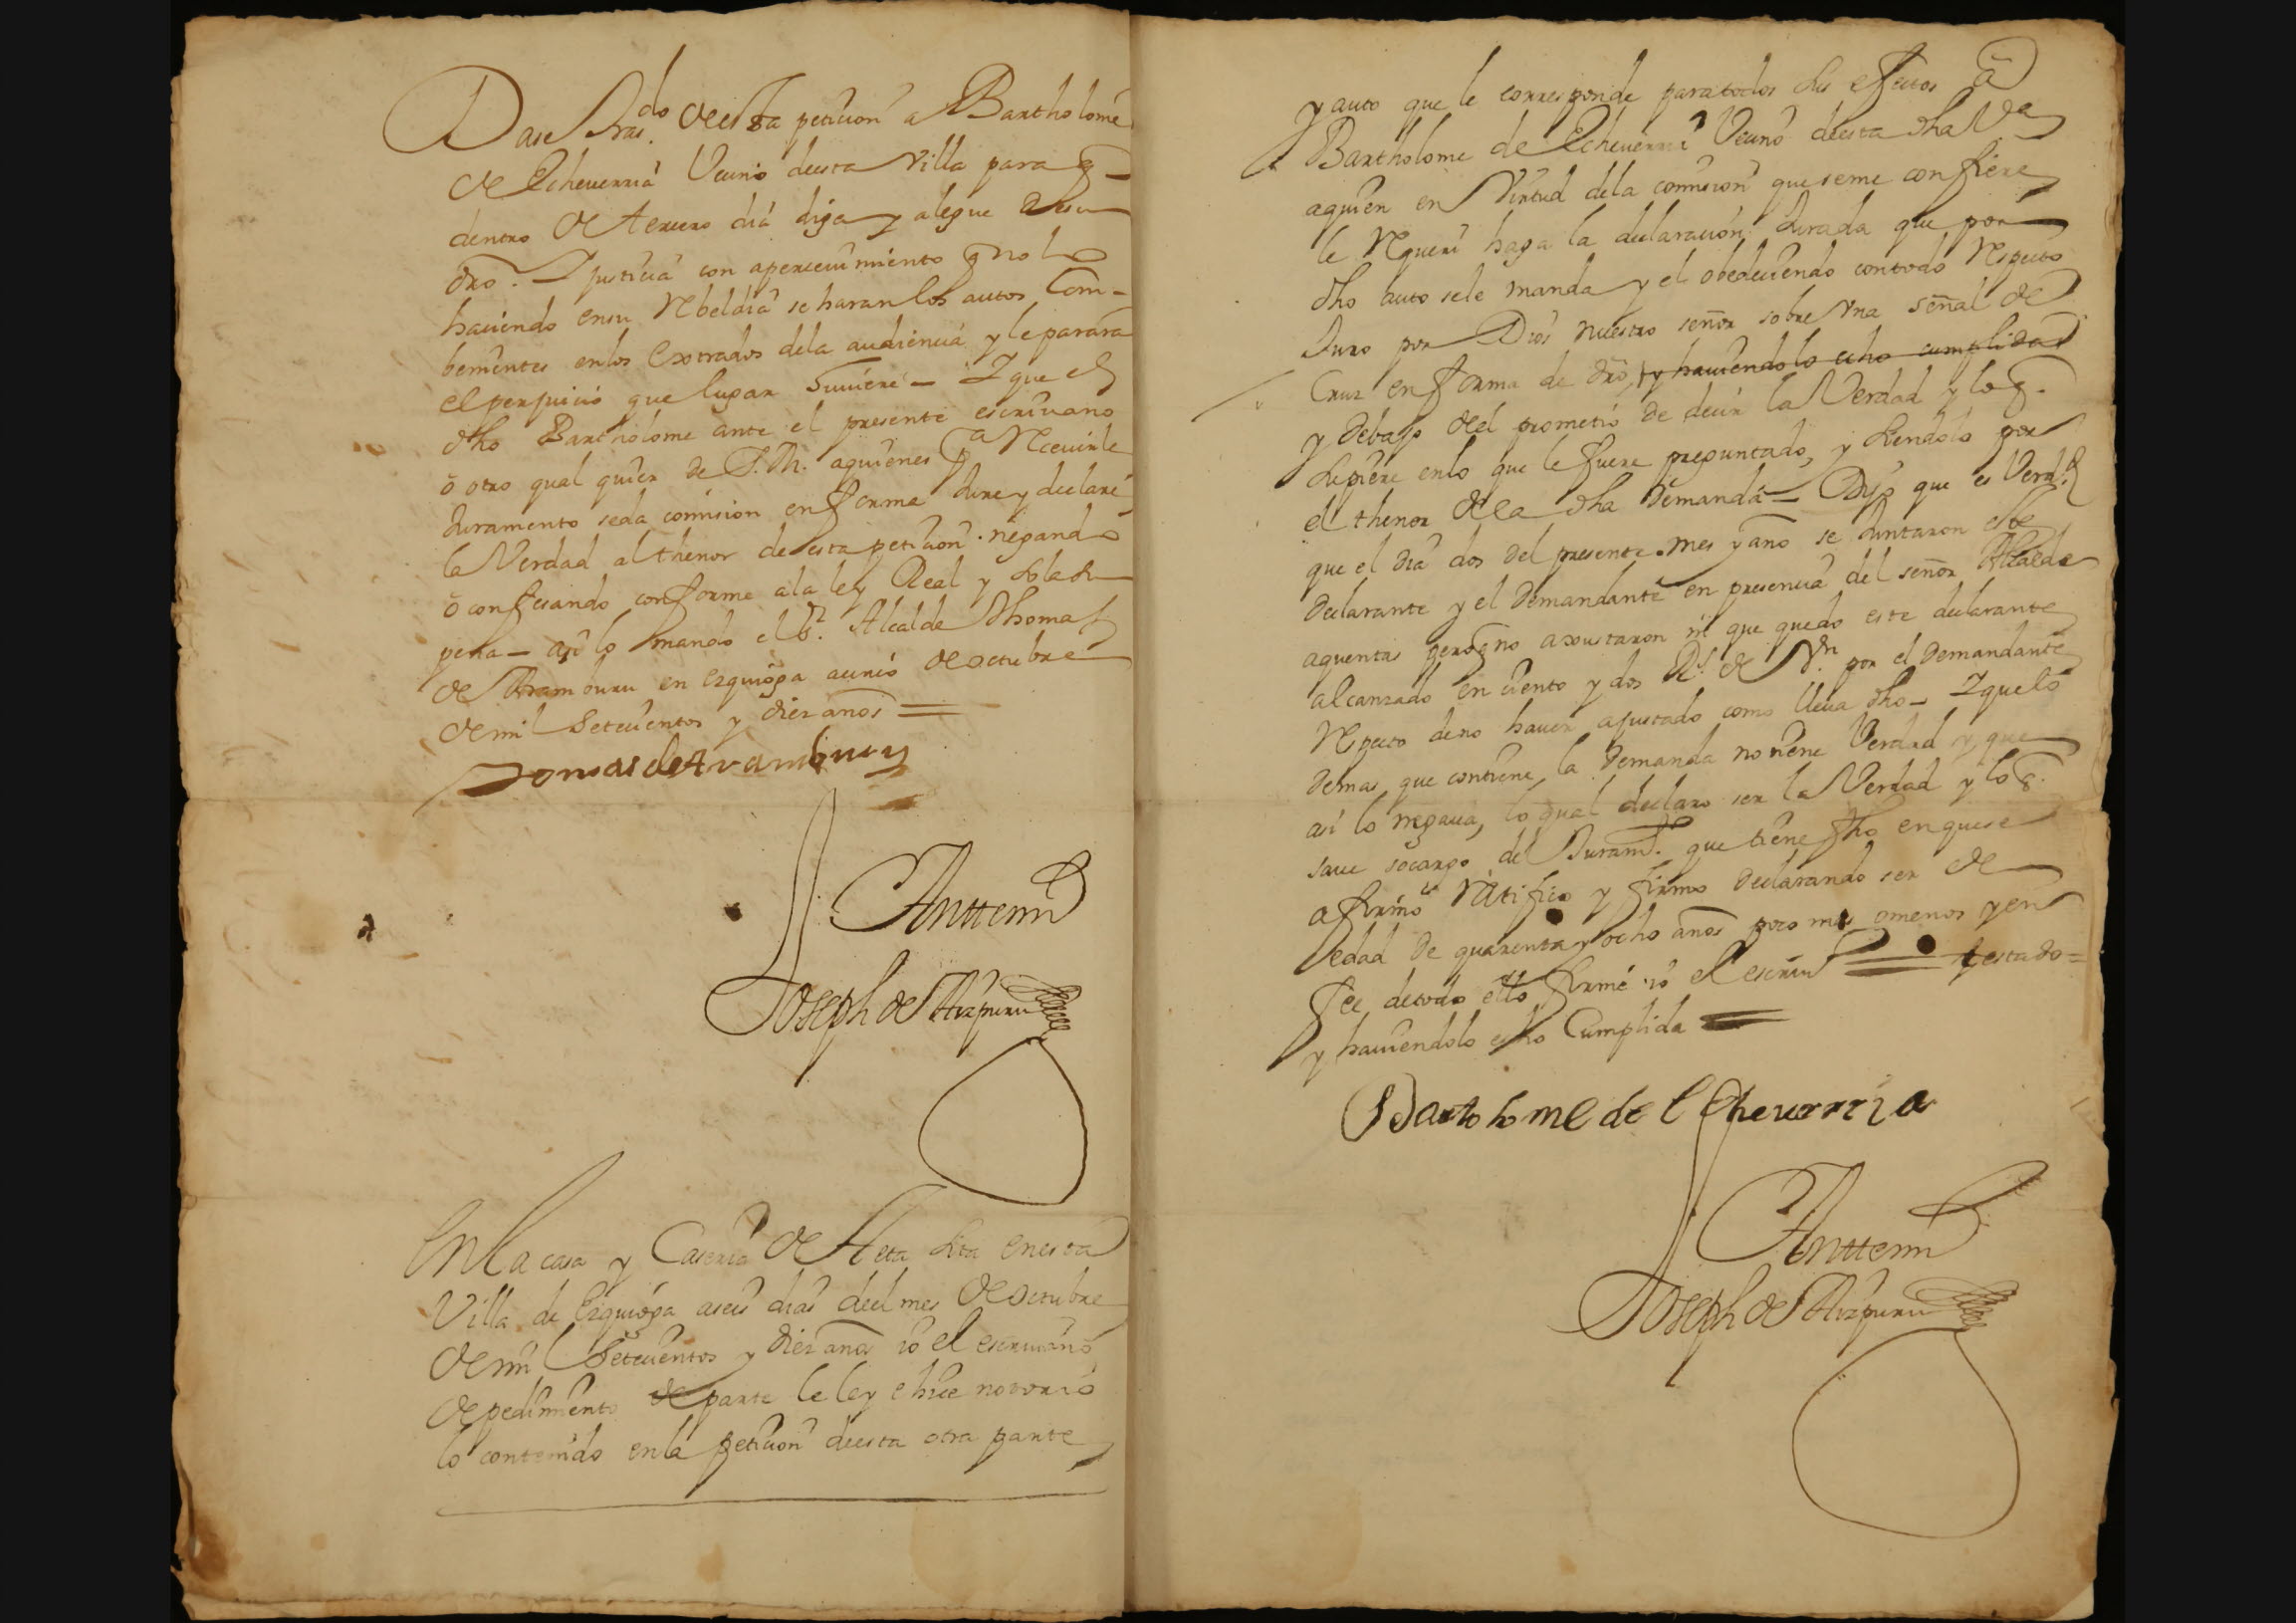 Dase tras.do de esta peticion a Bartholome
de Echeuerria Vecino desta Villa para q
dentro de tercero dia diga y alegue desu
dro. y justicia con aperceuimiento q no lo
haciendo ensu Rebeldia se haran los autos Com-
benientes enlos Extrados dela audiencia y le parara
el perjuicio que lugar huuiere - Y que el
dho Bartholome ante el presente escriuano
o otro qual quier de S.M. aquienes pa Receuirle
Juramento seda comision en forma Jure y declare
la Verdad al thenor de esta peticion. negando
o confesando conforme ala ley Real y so la su
pena - asi lo mando el Sr. Alcalde Thomas
de Aramburu en Ezquioga acinco de octubre
de mil Setecientos y diez años =
Tomas de Aramburu
Anttemi
Joseph de Aizpuru
En la casa y Caseria de Aeta sita en esta
Villa de Ezquioga aseis dias del mes de octubre
de mil Setecientos y diez años io el escriuano
de pedimiento de parte le ley e hice notorio
lo contenido en la peticion desta otra parte
y auto que le corresponde para todos sus efectos a
Bartholome de Echeuerria Vecino desta dha Va
aquien en Virtud dela comision que seme confiere
le Requeri haga la declaracion Jurada que por
dho auto sele manda y el obedeciendo contodo Respecto
Juro por Dios nuestro señor sobre Vna señal de
Cruz en forma de dro, y hauiendolo echo cumplida
y debajo del prometio de decir la Verdad y lo q.
supiere enlo que le fuere preguntado, y siendolo por
el thenor de la dha Demanda = Dijo que es Verd.d
que el dia dos del presente mes y año se Juntaron este
Declarante y el Demandante en presencia del señor Alcalde
aquentas pero q no axustaron ni que quedo este declarante
alcanzado en ciento y dos Rs. de Vn. por el Demandante
Respecto de no hauer ajustado como lleua dho - Y que lo
demas que contiene la Demanda no tiene Verdad y que
asi lo negaua, lo qual declaro ser la Verdad y lo q.
saue socargo del Juramto. que tiene fho en que se
afirmo Ratifico y firmo Declarando ser de
hedad de quarenta y ocho años poco mas omenos y en
fee de todo ello firme io el escriuo = testado =
y hauiendolo echo Cumplida
Bartolome de Echeuerria
Anttemi
Joseph de Aizpuru